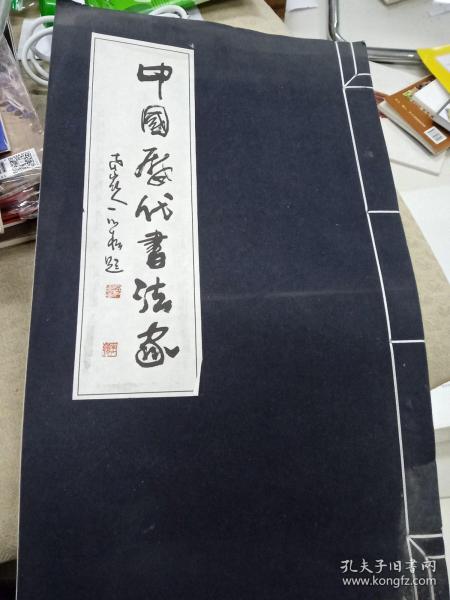 中國歷代書法家
題
孔夫子旧书网
www.kongfz.com